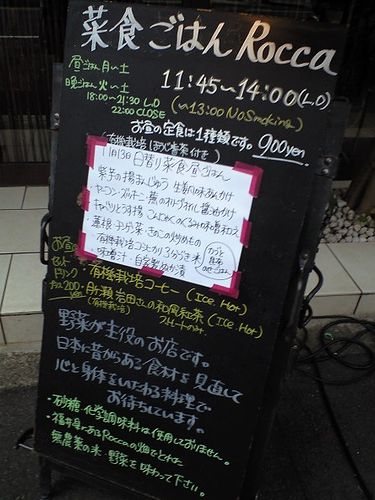 菜食ごはん Rocca
昼ごはん 月〜土 11:45〜14:00(L.O)
晩ごはん 火〜土 (〜13:00 No Smoking)
18:00〜21:30 L.O
22:00 CLOSE
お昼の定食は1種類です。900yen
(有機栽培ほうじ番茶付き)
11月30 日替り菜食昼ごはん
・キャベツと 揚 こんにゃくのくるみ味噌和え
・蓮根・チンゲン菜・きのこの炒めもの
・有機栽培コシヒカリ 3分づき米
・味噌汁・自家製ぬか漬
お昼の
セット
ドリンク
プラス200yen
・有機栽培コーヒー (Ice, Hot)
・月ヶ瀬 岩田さんの和風紅茶 (Ice, Hot)
(有機栽培) ストレートのみ
野菜が主役のお店です。
日本に昔からある食材を見直して
心と身体をいたわる料理で
お待ちしています。
・砂糖・化学調味料は使用しておりません。
・福井県にあるRoccaの畑でとれた
無農薬の米・野菜を味わって下さい。